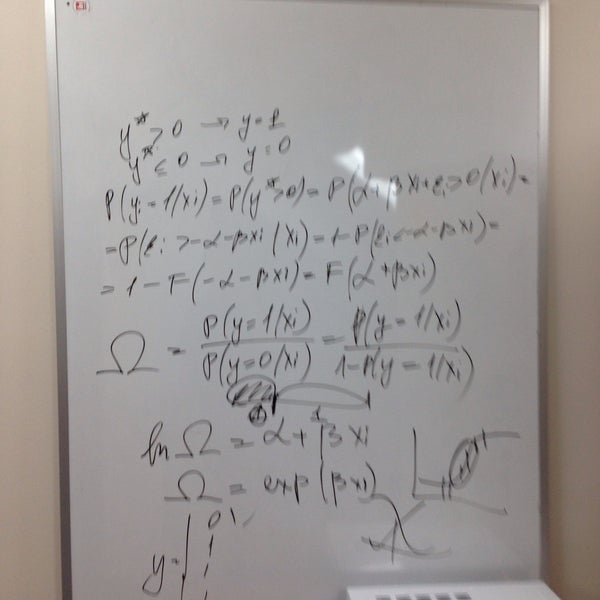 y* > 0 → y = 1
y* ≤ 0 → y = 0
P(yi = 1/xi) = P(y* > 0) = P(α + βxi + εi > 0/xi) =
= P(εi > -α - βxi / xi) = 1 - P(εi < -α - βxi) =
= 1 - F(-α - βxi) = F(α + βxi)
Ω = P(y = 1/xi) / P(y = 0/xi) = P(y = 1/xi) / 1 - P(y = 1/xi)
1
ln Ω = α + βxi
Ω = exp(βxi)
y =
0 1
1